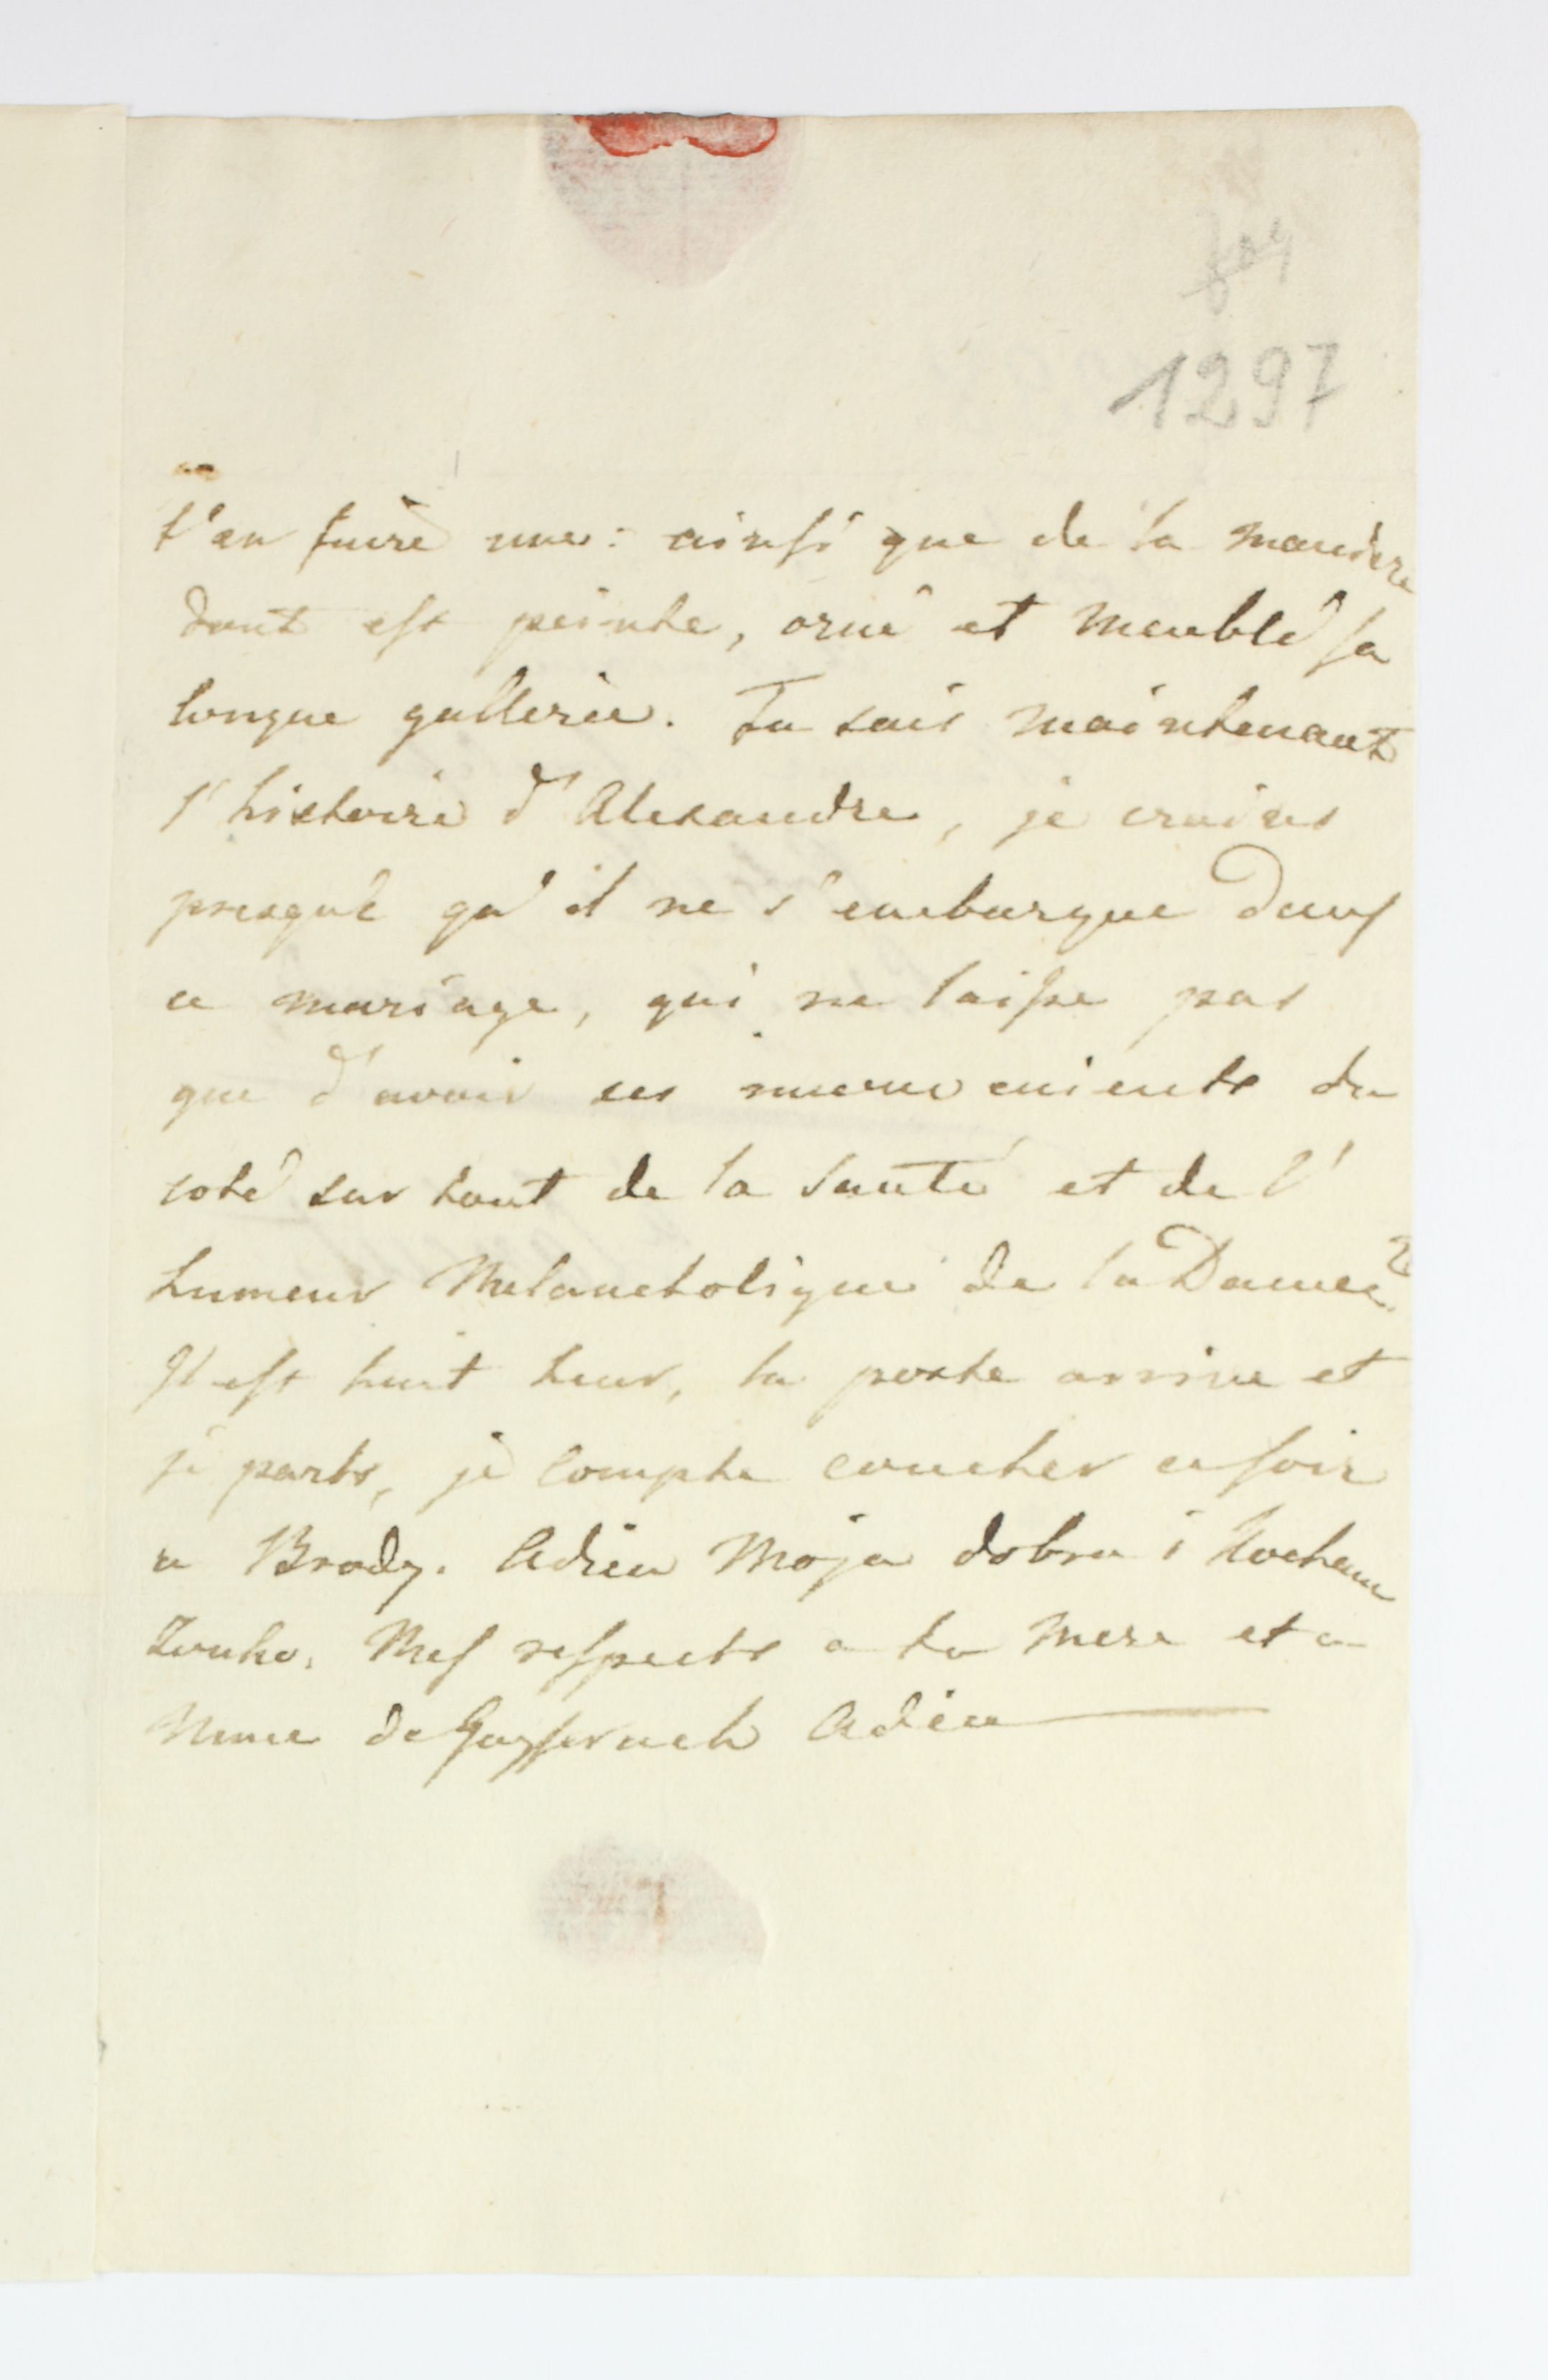 1297
t'en faire une: ainsi que de la maniere
dont est peinte, orné et meublé sa
longue gallerie. Tu sais maintenant
l'histoire d'Alexandre, je crains
presque qu'il ne s'embarque dans
ce mariage, qui ne laisse pas
que d'avoir ses inconvenients du
coté sur tout de la santé et de l'
humeur Melancholique de la Dame
Il est huit heur, la poste arrive et
je parts, je compte coucher ce soir
a Brody. Adieu Moja dobra i Kochana
Zonko. Mes respects a ta Mere et a
Mme de Adieu